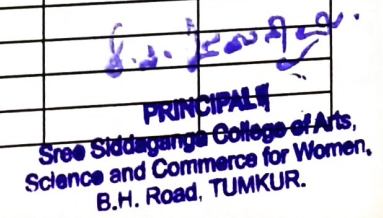 PRINCIPAL
Sree Siddaganga College of Arts,
Science and Commerce for Women,
B.H. Road, TUMKUR.